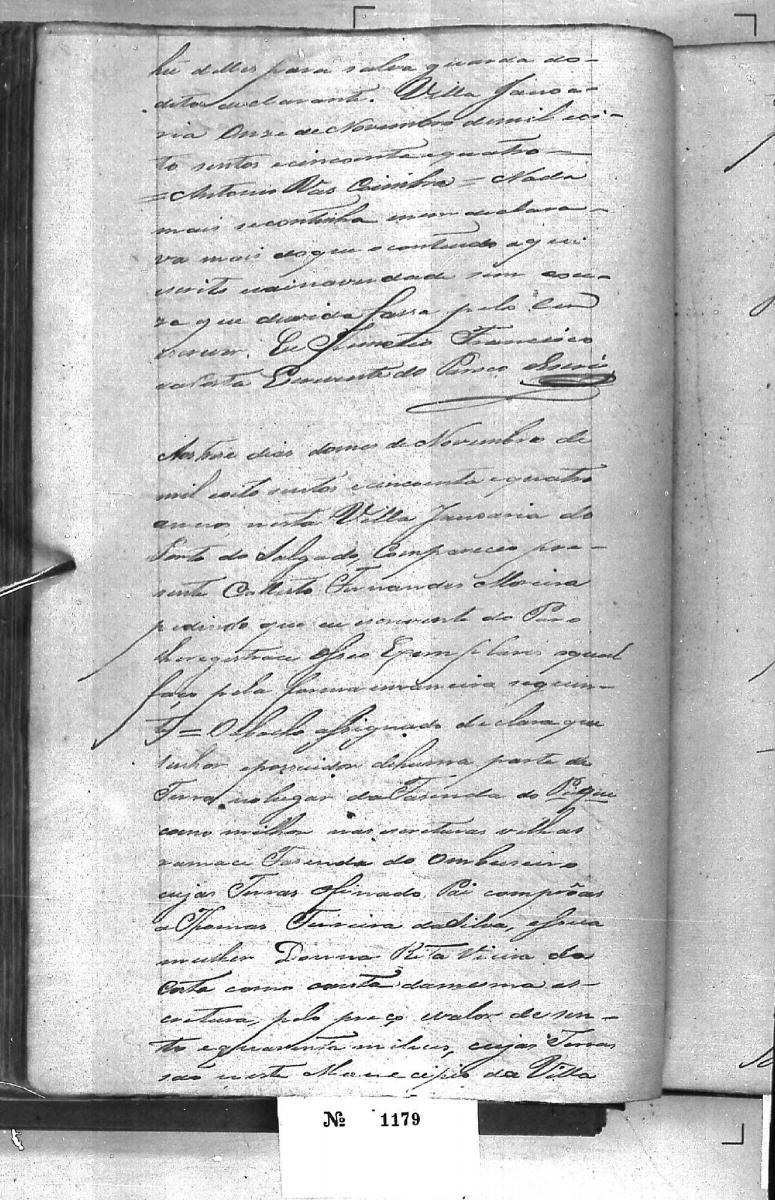 hú delles para salva guarda do
dito declarante. Villa Janoa-
ria Onze de Novembro de mil e oi-
to sentos e cincoenta e quatro
= Antonio Vas Coimbra = Nada
mais se continha nem declara-
va mais do que o contiudo aqui
escrito
que duvida fassa pelo
Eu Francisco
da Costa Escrevente do
Aos treze dias do mes de Novembro de
mil oito sentos e cincoenta e quatro
annos, nesta Villa Janoaria do
Porto do Salgado, Compareceo pre-
sente Callisto Fernandes Moreira
pedindo que eu escrevente do
lhe registrace os seo Exemplares o qual
faço pela forma e maneira seguin-
te = O abacho assignado declara que
senhor e possuidor de huma parte de
Terra no lugar da Fasenda do
como milhor nas escrituras velhas
xamace Fasenda do Ombuseiro
cujas Terras o finado Pai comprou as
a Thomas Teixeira da Silva, e sua
mulher Donna Rita Vieira da
Costa como consta da mesma es-
critura, pelo preço e valor de sen-
to e quarenta mil reis, cujas Terras
são neste Monecipio da Villa
Nº 1179